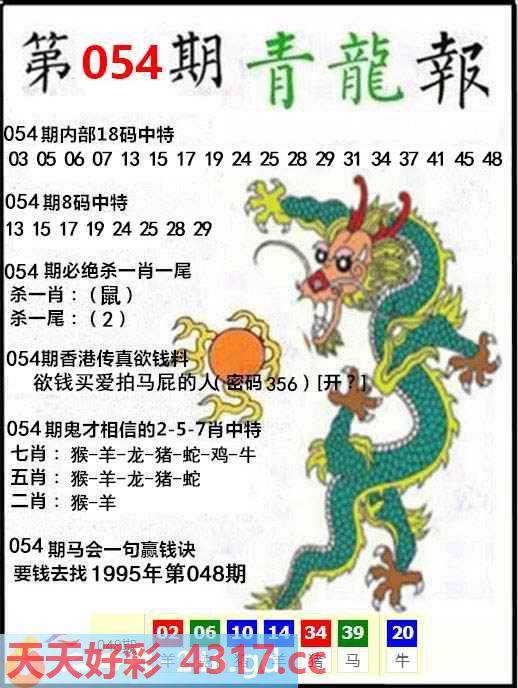 第054期青龍報
054期内部18码中特
03 05 06 07 13 15 17 19 24 25 28 29 31 34 37 41 45 48
054期8码中特
13 15 17 19 24 25 28 29
054 期必绝杀一肖一尾
杀一肖：（鼠）
杀一尾：（2）
054期香港传真欲钱料
欲钱买爱拍马屁的人（密码356）[开？]
054期鬼才相信的2-5-7肖中特
七肖：猴-羊-龙-猪-蛇-鸡-牛
五肖：猴-羊-龙-猪-蛇
二肖：猴-羊
054期马会一句赢钱诀
要钱去找1995年第048期
02 06 10 14 34 39 20
羊 羊 猪 马 牛
天天好彩 4317.cc